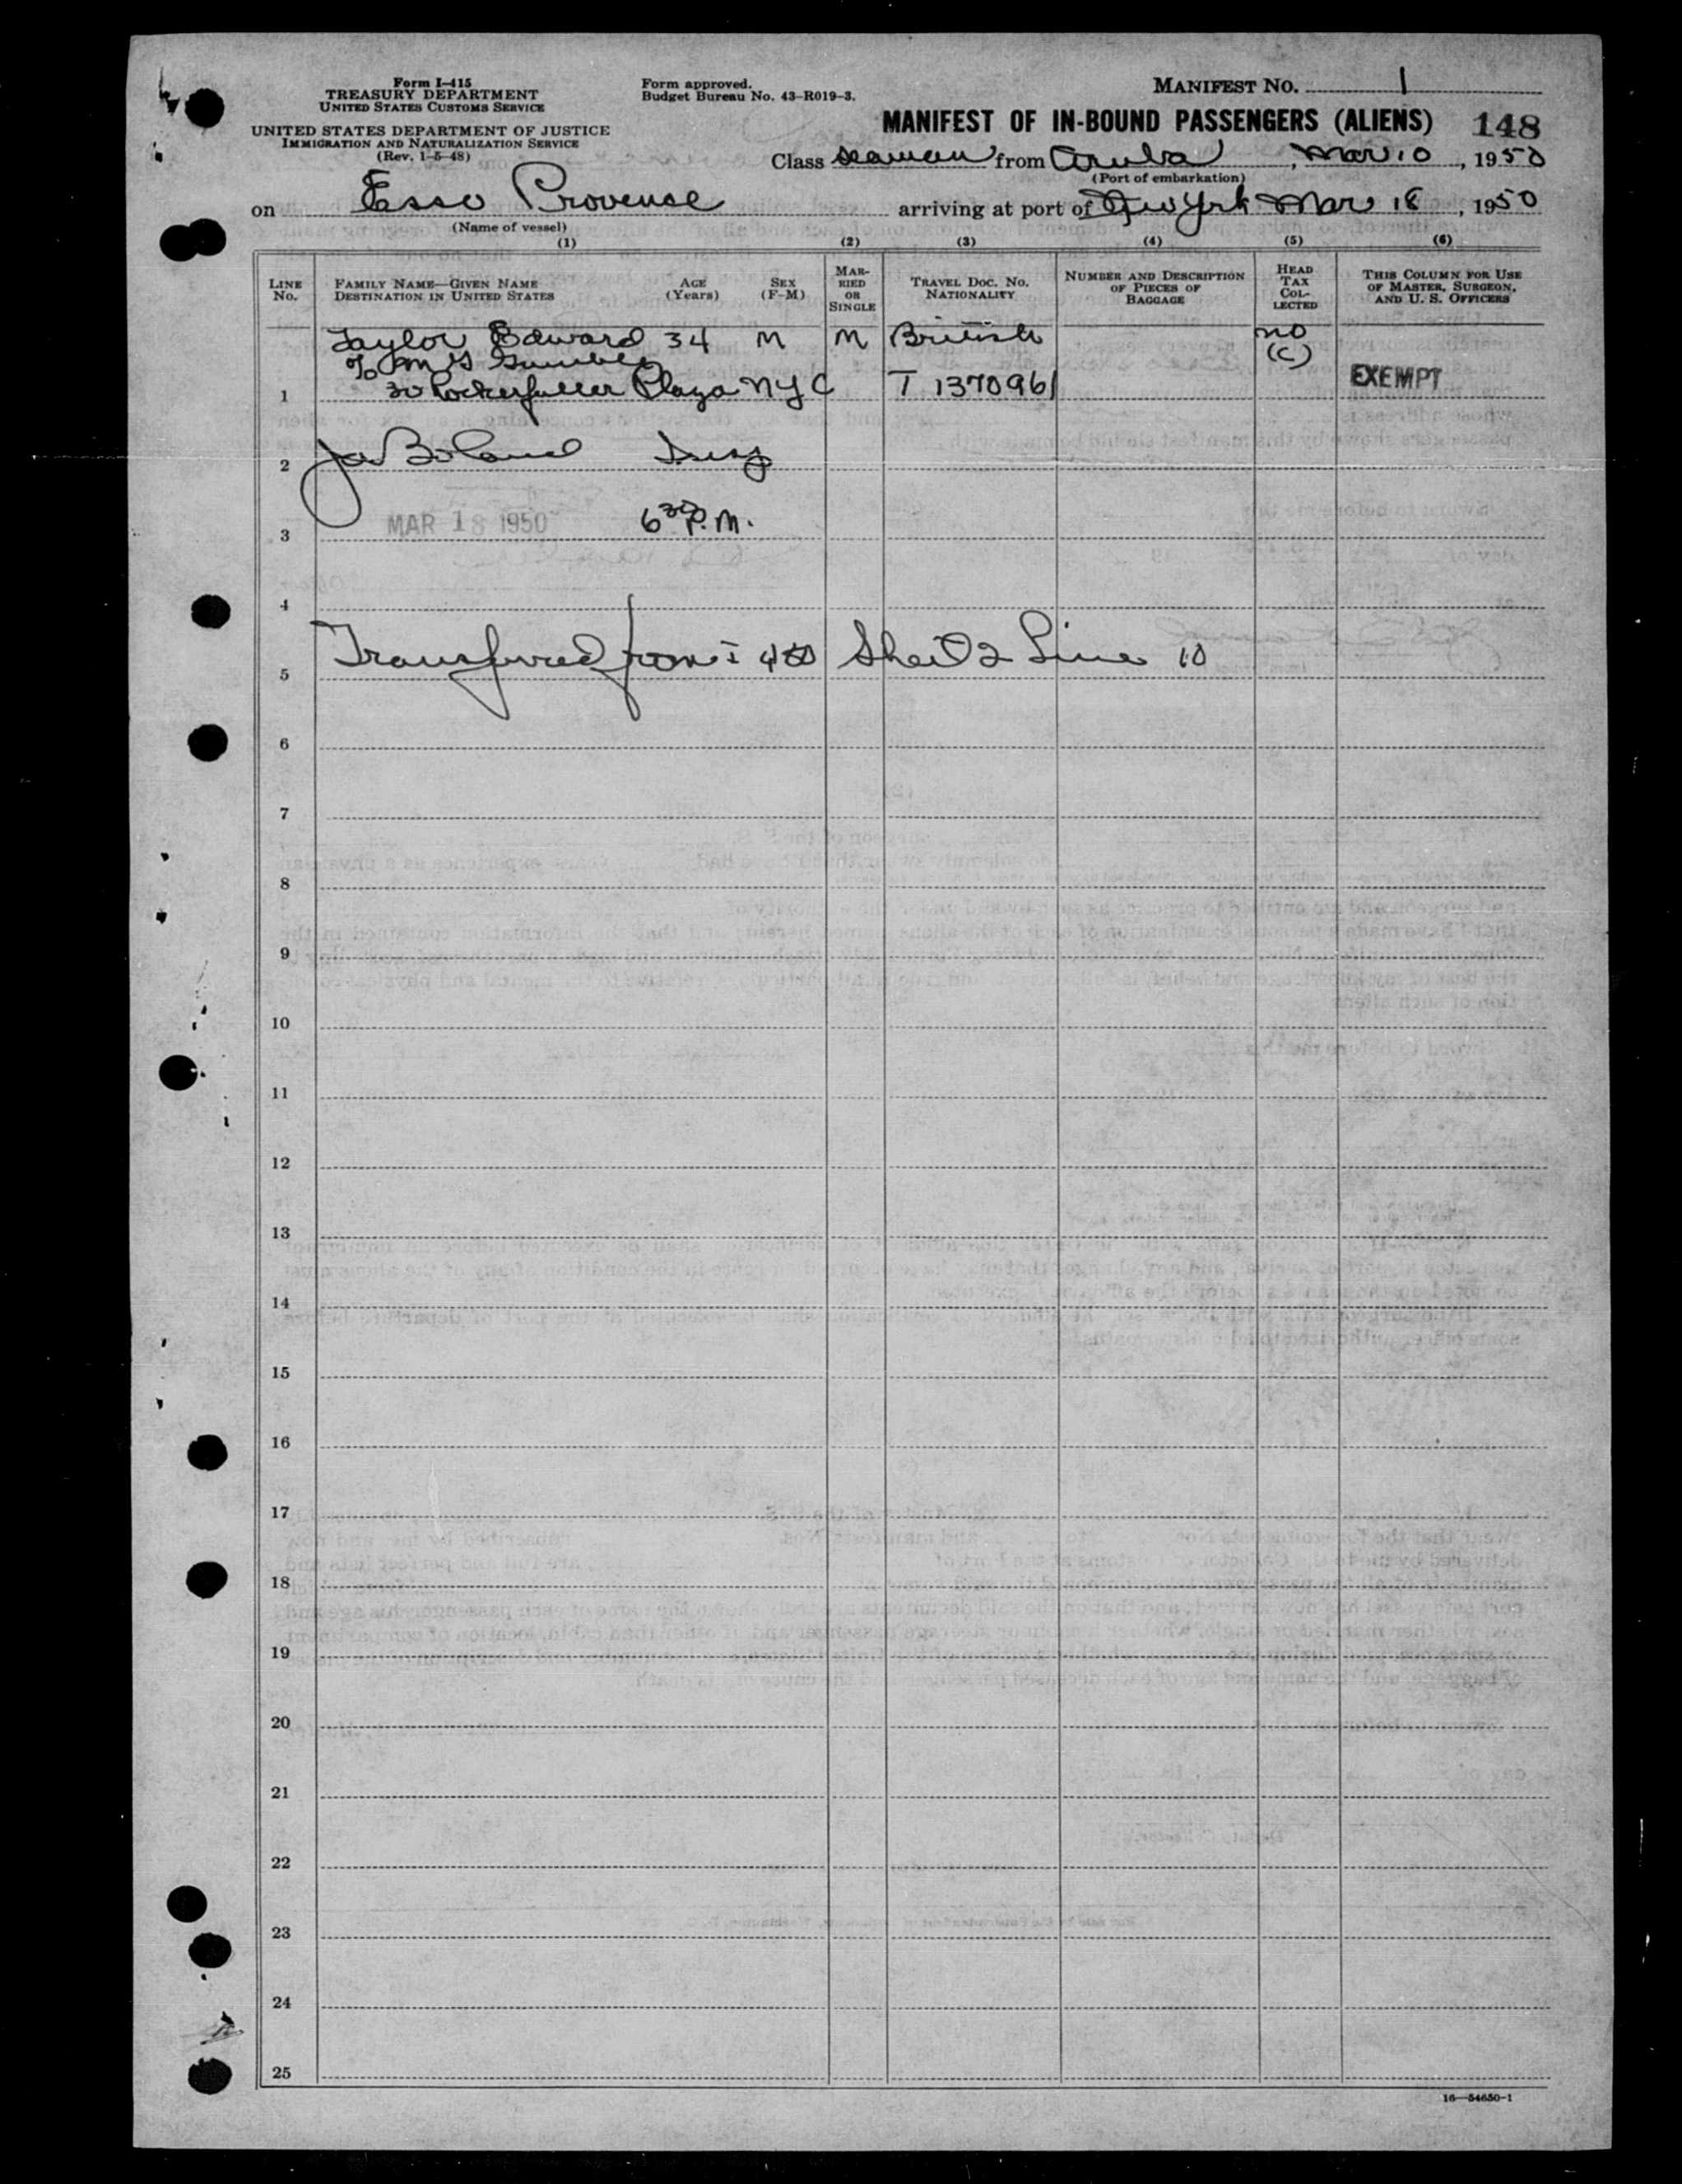 Form I-415
TREASURY DEPARTMENT
UNITED STATES CUSTOMS SERVICE
UNITED STATES DEPARTMENT OF JUSTICE
IMMIGRATION AND NATURALIZATION SERVICE
(Rev. 1-5-48)
Form approved.
Budget Bureau No. 43-R019-3.
MANIFEST NO. 1
MANIFEST OF IN-BOUND PASSENGERS (ALIENS) 148
Class seaman from Aruba, Mar 10, 1950
(Port of embarkation)
on Esso Provense arriving at port of New York Mar 18, 1950
(Name of vessel)
(1) (2) (3) (4) (5) (6)
LINE No. FAMILY NAME—GIVEN NAME DESTINATION IN UNITED STATES AGE (Years) SEX (F-M) MARRIED OR SINGLE TRAVEL DOC. NO. NATIONALITY NUMBER AND DESCRIPTION OF PIECES OF BAGGAGE HEAD TAX COLLECTED THIS COLUMN FOR USE OF MASTER, SURGEON, AND U. S. OFFICERS
Taylor Edward 34 M M British no
(C)
1 30 Rockerfuller Plaza NYC T 1370961 EXEMPT
2 Boland
3 MAR 18 1950 6 30 P.M.
4
5 Transferred from I 480 Sheet 2 Line 10
6
7
8
9
10
11
12
13
14
15
16
17
18
19
20
21
22
23
24
25
16—54650-1